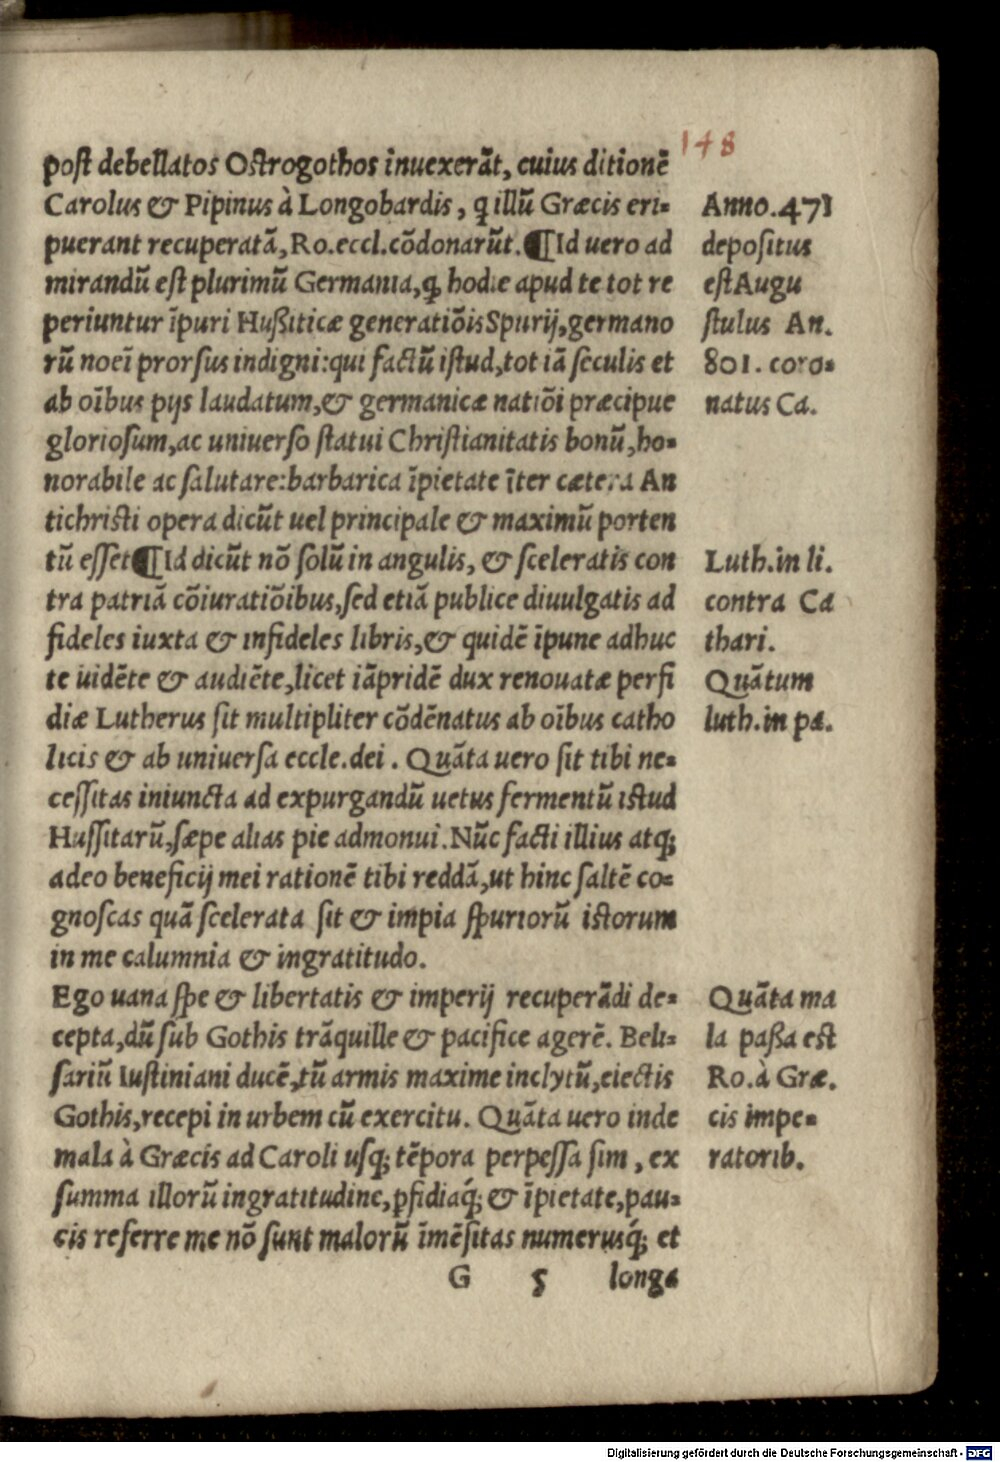 148
post debellatos Ostrogothos inuexerāt, cuius ditionē
Carolus & Pipinus à Longobardis, q illū Græcis eri-
puerant recuperatā, Ro.eccl.cōdonarūt.¶Id uero ad
mirandū est plurimū Germania, ꝙ hodie apud te tot re
periuntur īpuri Hußiticæ generatiōis Spurij, germano
rū noeī prorsus indigni: qui factū istud, tot iā seculis et
ab oībus pijs laudatum, & germanicæ natiōi præcipue
gloriosum, ac uniuerso statui Christianitatis bonū, ho-
norabile ac salutare: barbarica īpietate īter cætera An
tichristi opera dicūt uel principale & maximū porten
tū esset¶Id dicūt nō solū in angulis, & sceleratis con
tra patriā cōiuratiōibus, sed etiā publice diuulgatis ad
fideles iuxta & infideles libris, & quidē īpune adhuc
te uidēte & audiēte, licet iāpridē dux renouatæ perfi
diæ Lutherus sit multipliter cōdēnatus ab oībus catho
licis & ab uniuersa eccle.dei. Quāta uero sit tibi ne-
cessitas iniuncta ad expurgandū uetus fermentū istud
Hussitarū, sæpe alias pie admonui. Nūc facti illius atq;
adeo beneficij mei rationē tibi reddā, ut hinc saltē co-
gnoscas quā scelerata sit & impia spuriorū istorum
in me calumnia & ingratitudo.
Ego uana spe & libertatis & imperij recuperādi de-
cepta, dū sub Gothis trāquille & pacifice agerē. Beli-
sariū Iustiniani ducē, tū armis maxime inclytū, eiectis
Gothis, recepi in urbem cū exercitu. Quāta uero inde
mala à Græcis ad Caroli usq; tēpora perpessa sim, ex
summa illorū ingratitudine, ꝑfidiaq́; & īpietate, pau-
cis referre me nō sunt malorū īmēsitas numerusq́; et
G 5 longa
Anno.471
depositus
est Augu
stulus An.
801. coro-
natus Ca.
Luth.in li.
contra Ca
thari.
Quātum
luth.in pa.
Quāta ma
la paßa est
Ro.à Græ.
cis impe-
ratorib.
Digitalisierung gefördert durch die Deutsche Forschungsgemeinschaft - DFG